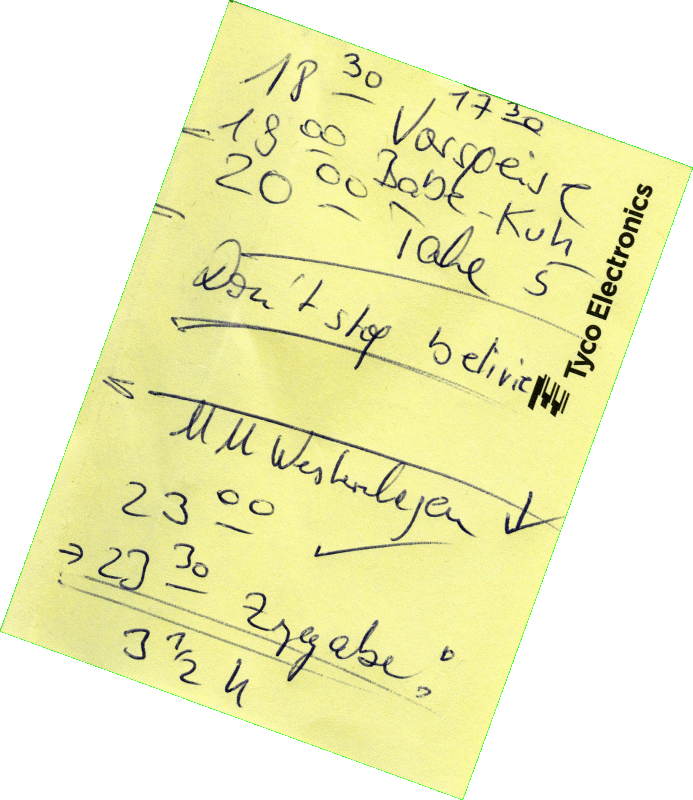 18 30 17 30
19 00 Vorspeise
20 00 Babe-Kuh
Take 5
Don't stop belivie
MM Westernhagen
23 00
→ 23 30 Zugabe:
3 1/2 h
Tyco Electronics